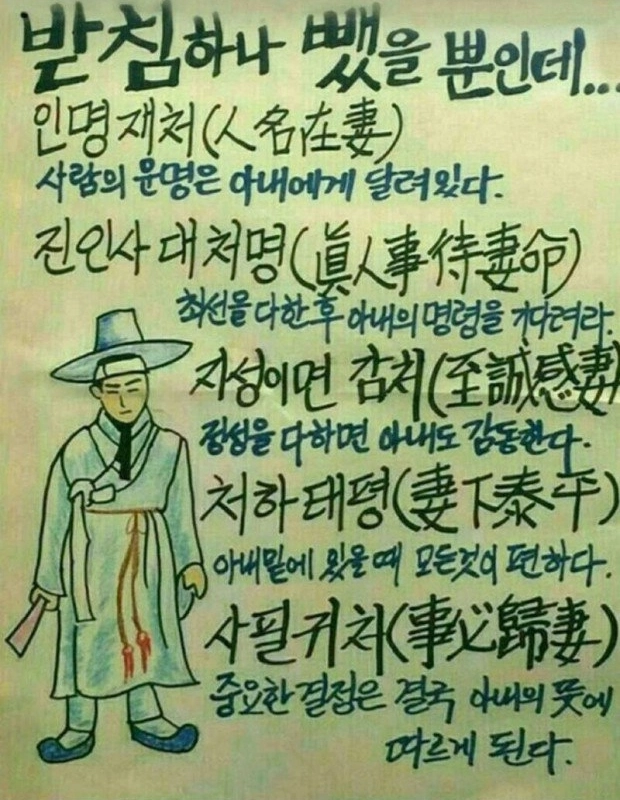 받침하나 뺐을 뿐인데...
인명재처(人名在妻)
사람의 운명은 아내에게 달려있다.
진인사대처명(眞人事待妻命)
최선을 다한후 아내의 명령을 기다려라.
지성이면 감처(至誠感妻)
정성을 다하면 아내도 감동한다.
처하태평(妻下泰平)
아내밑에 있을때 모든것이 편하다.
사필귀처(事必歸妻)
중요한 결정은 결국 아내의 뜻에
따르게 된다.